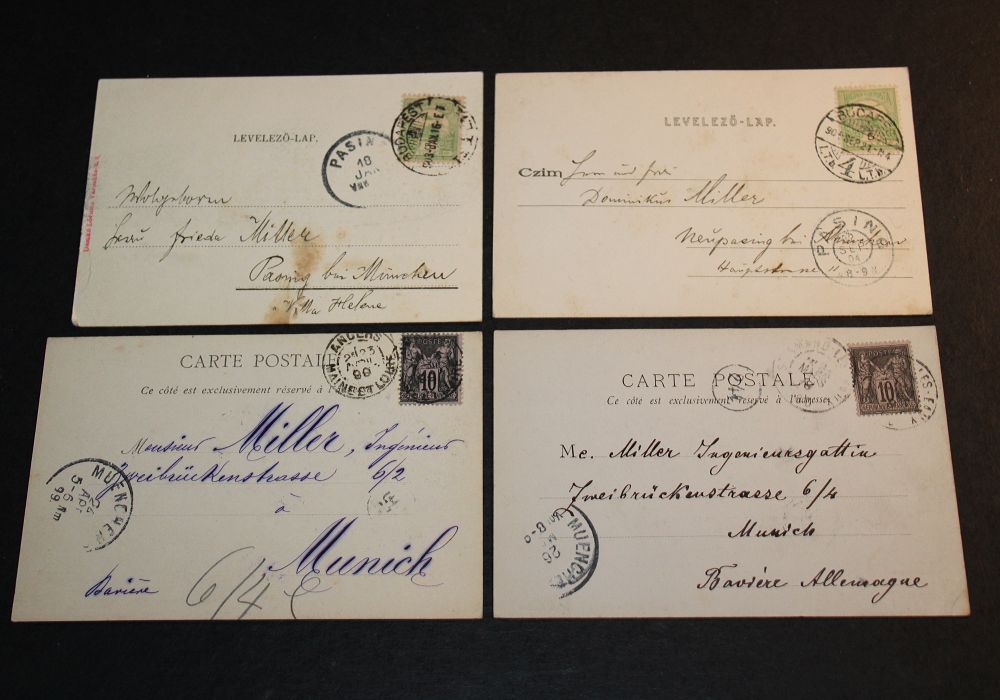 LEVELEZŐ-LAP.
BUDAPEST
PASING
18
JAN
Frau Frieda Miller
Pasing bei München
Villa Helene
LEVELEZŐ-LAP.
BUDAPEST
4
Czim
Dominikus Miller
Neupasing bei München
Hauptstrasse 11
PASING
SEP
04
8-9
CARTE POSTALE
Ce côté est exclusivement réservé à l'adresse
ANGERS
MAINE ET LOIRE
99
POSTE
10
Monsieur Miller, Ingénieur
Zweibrückenstrasse 6/2
à
Munich
Bavière
6/4
MUENCHEN
24
Apr
5-6 Nm
99
CARTE POSTALE
Ce côté est exclusivement réservé à l'adresse
POSTE
10
Me. Miller Ingenieursgattin
Zweibrückenstrasse 6/4
Munich
Bavière Allemagne
MUENCHEN
26